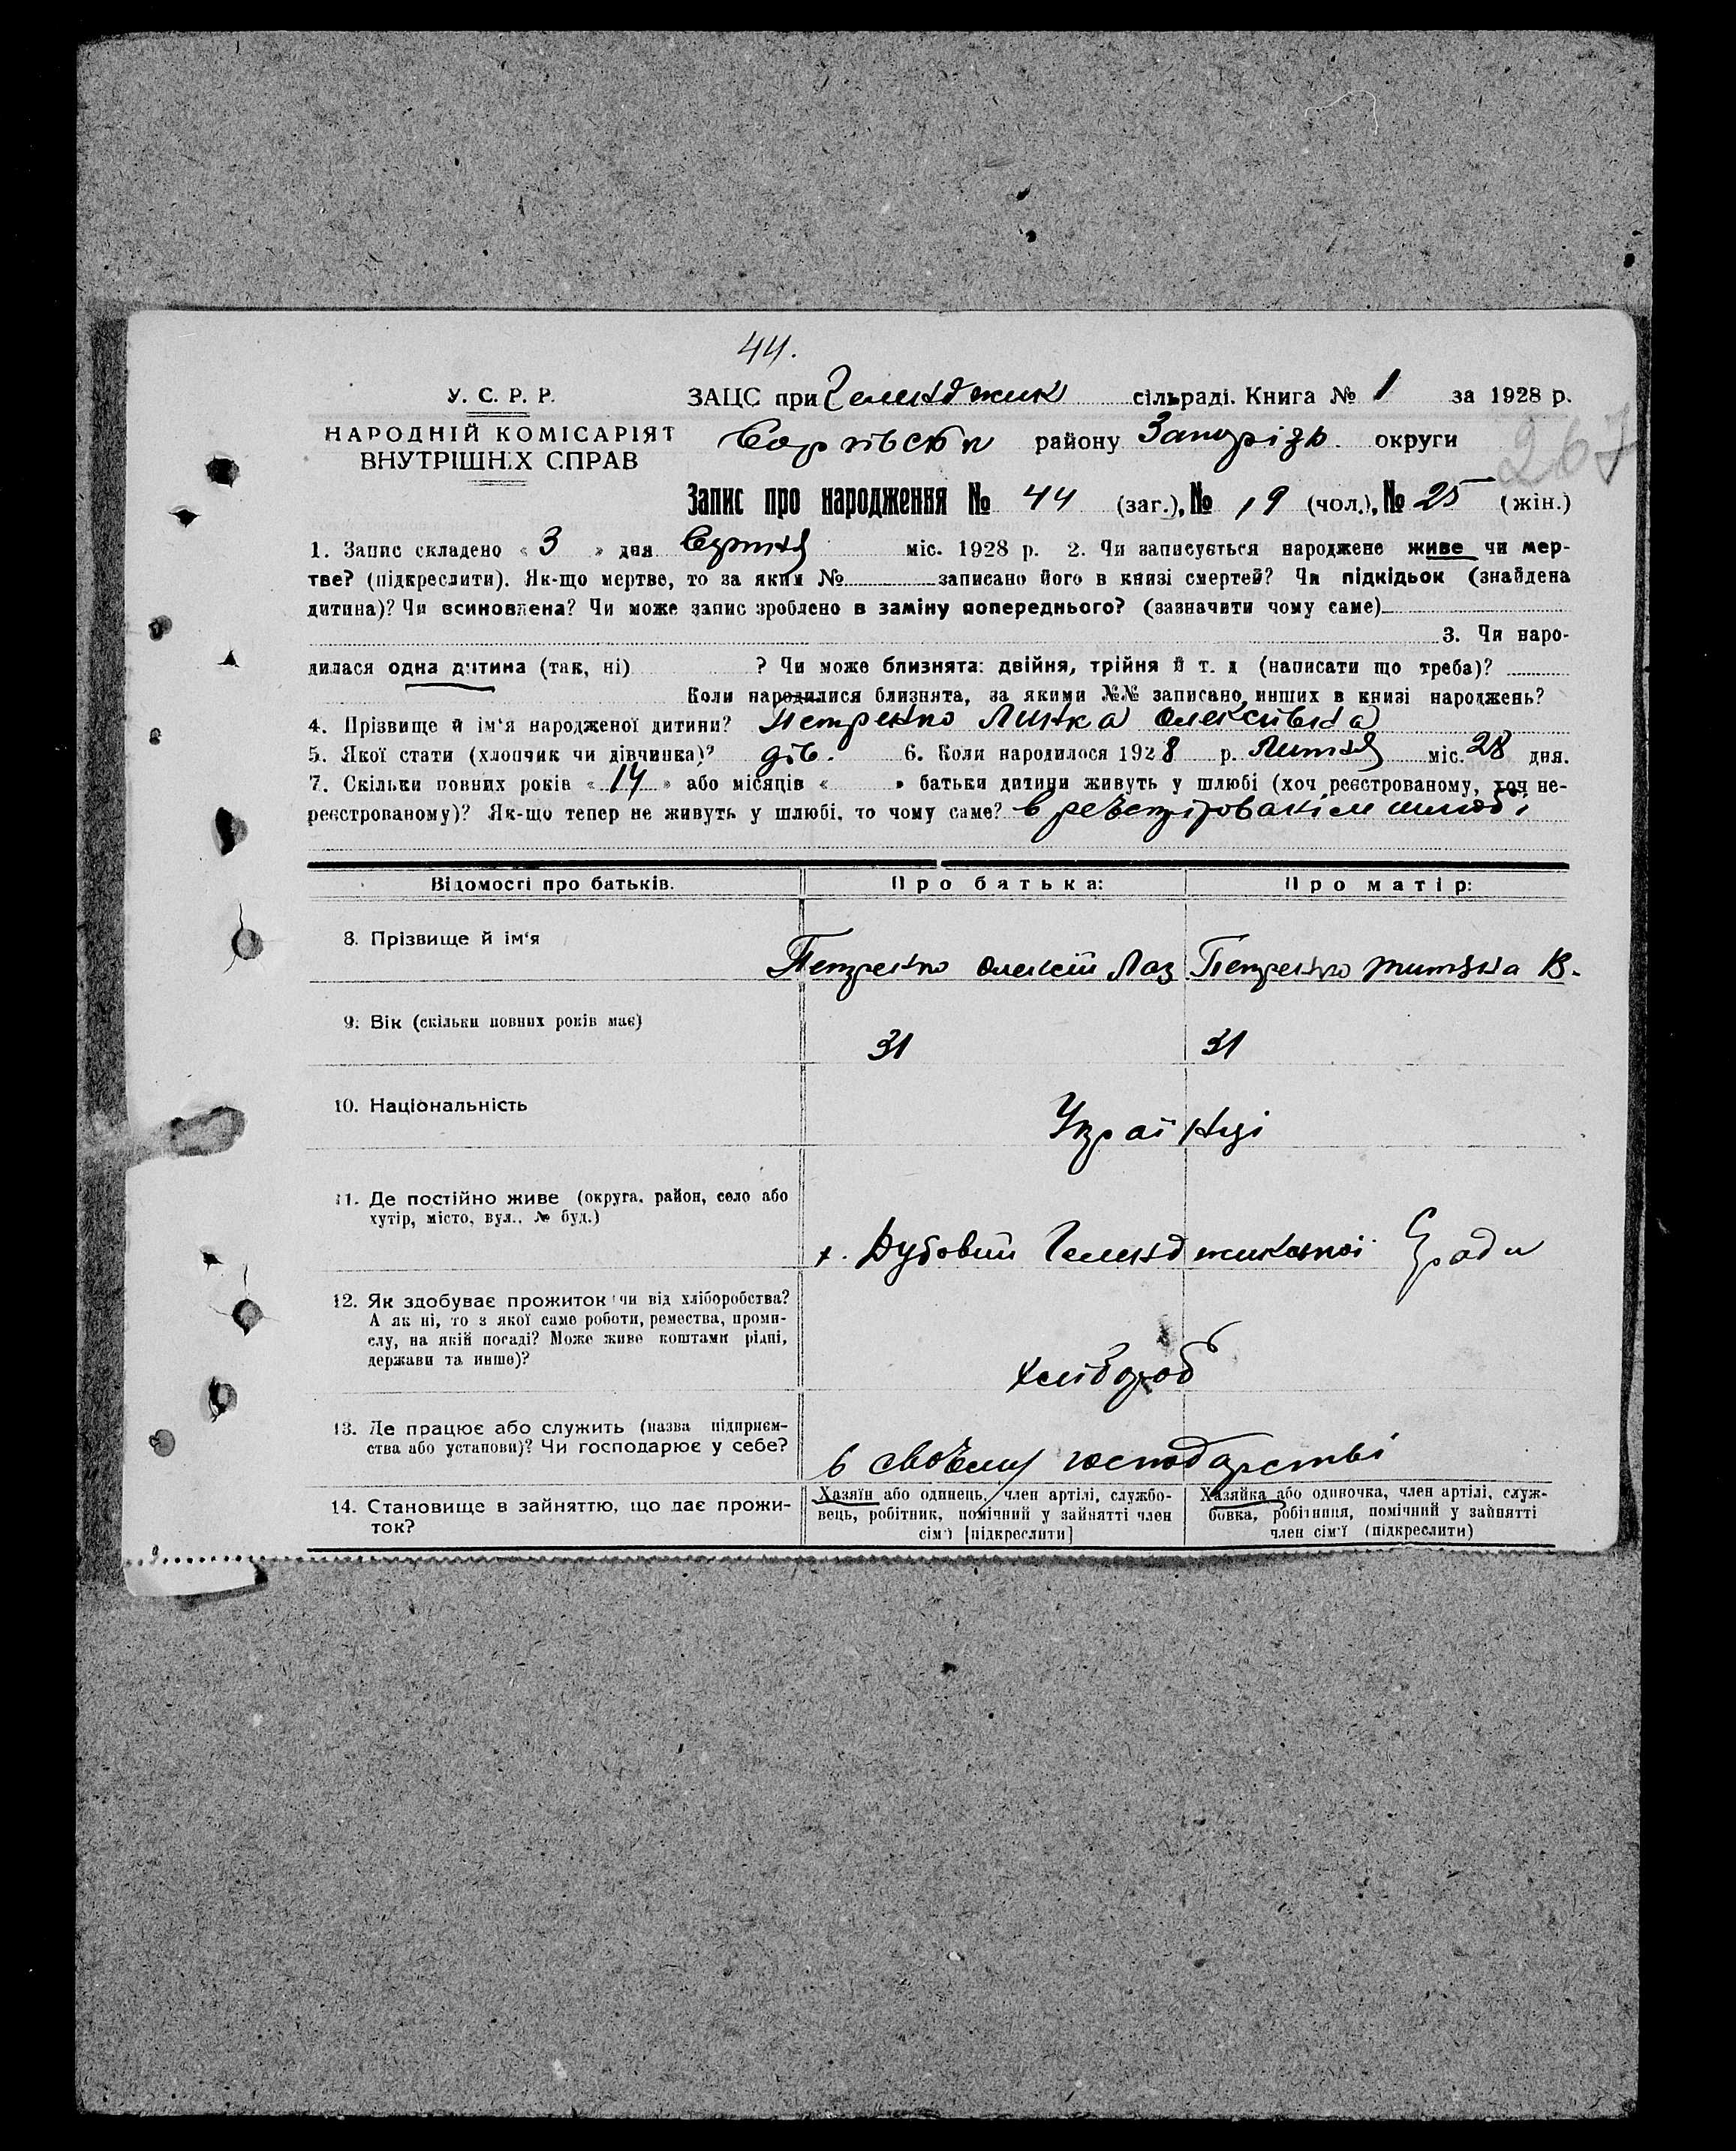 44.
У. С. Р. Р.
НАРОДНІЙ КОМІСАРІЯТ
ВНУТРІШНІХ СПРАВ
ЗАЦС при Гелинджик сільраді. Книга № 1 за 1928 р.
району Запоріз. округи
267
Запис про народження № 44 (заг.), № 19 (чол.), № 25 (жін.)
1. Запис складено « 3 » дня Серпня міс. 1928 р. 2. Чи записується народжене живе чи мер-
тве? (підкреслити). Як-що мертве, то за яким № записано його в книзі смертей? Чи підкідьок (знайдена
дитина)? Чи всиновлена? Чи може запис зроблено в заміну попереднього? (зазначити чому саме)
3. Чи наро-
дилася одна дитина (так, ні) ? Чи може близнята: двійня, трійня й т. д (написати що треба)?
Коли народилися близнята, за якими №№ записано инших в книзі народжень?
4. Прізвище й ім‘я народженої дитини? Петренко Олексіівна
5. Якої стати (хлопчик чи дівчинка)? дів. 6. Коли народилося 1928 р. Липня міс. 28 дня.
7. Скільки повних років « 14 » або місяців « » батьки дитини живуть у шлюбі (хоч реєстрованому, хоч не-
реєстрованому)? Як-що тепер не живуть у шлюбі, то чому саме? в шлюбі
Відомості про батьків. Про батька: Про матір:
8. Прізвище й ім‘я Петренко Олексій Лаз Петренко Титяна В.
9. Вік (скільки повних років має) 31 31
10. Національність Українці
11. Де постійно живе (округа, район, село або
хутір, місто, вул., № буд.)
х. Дубовий Гелинджикської С/ради
12. Як здобуває прожиток чи від хліборобства?
А як ні, то з якої саме роботи, ремества, проми-
слу, на якій посаді? Може живе коштами рідні,
держави та инше)?
хлібороб
13. Де працює або служить (назва підприєм-
ства або установи)? Чи господарює у себе?
в своєму господарстві
14. Становище в зайняттю, що дає прожи-
ток?
Хазяїн або одинець, член артілі, службо-
вець, робітник, помічний у зайнятті член
сім‘ї [підкреслити]
Хазяйка або одиночка, член артілі, служ-
бовка, робітниця, помічний у зайнятті
член сім‘ї (підкреслити)